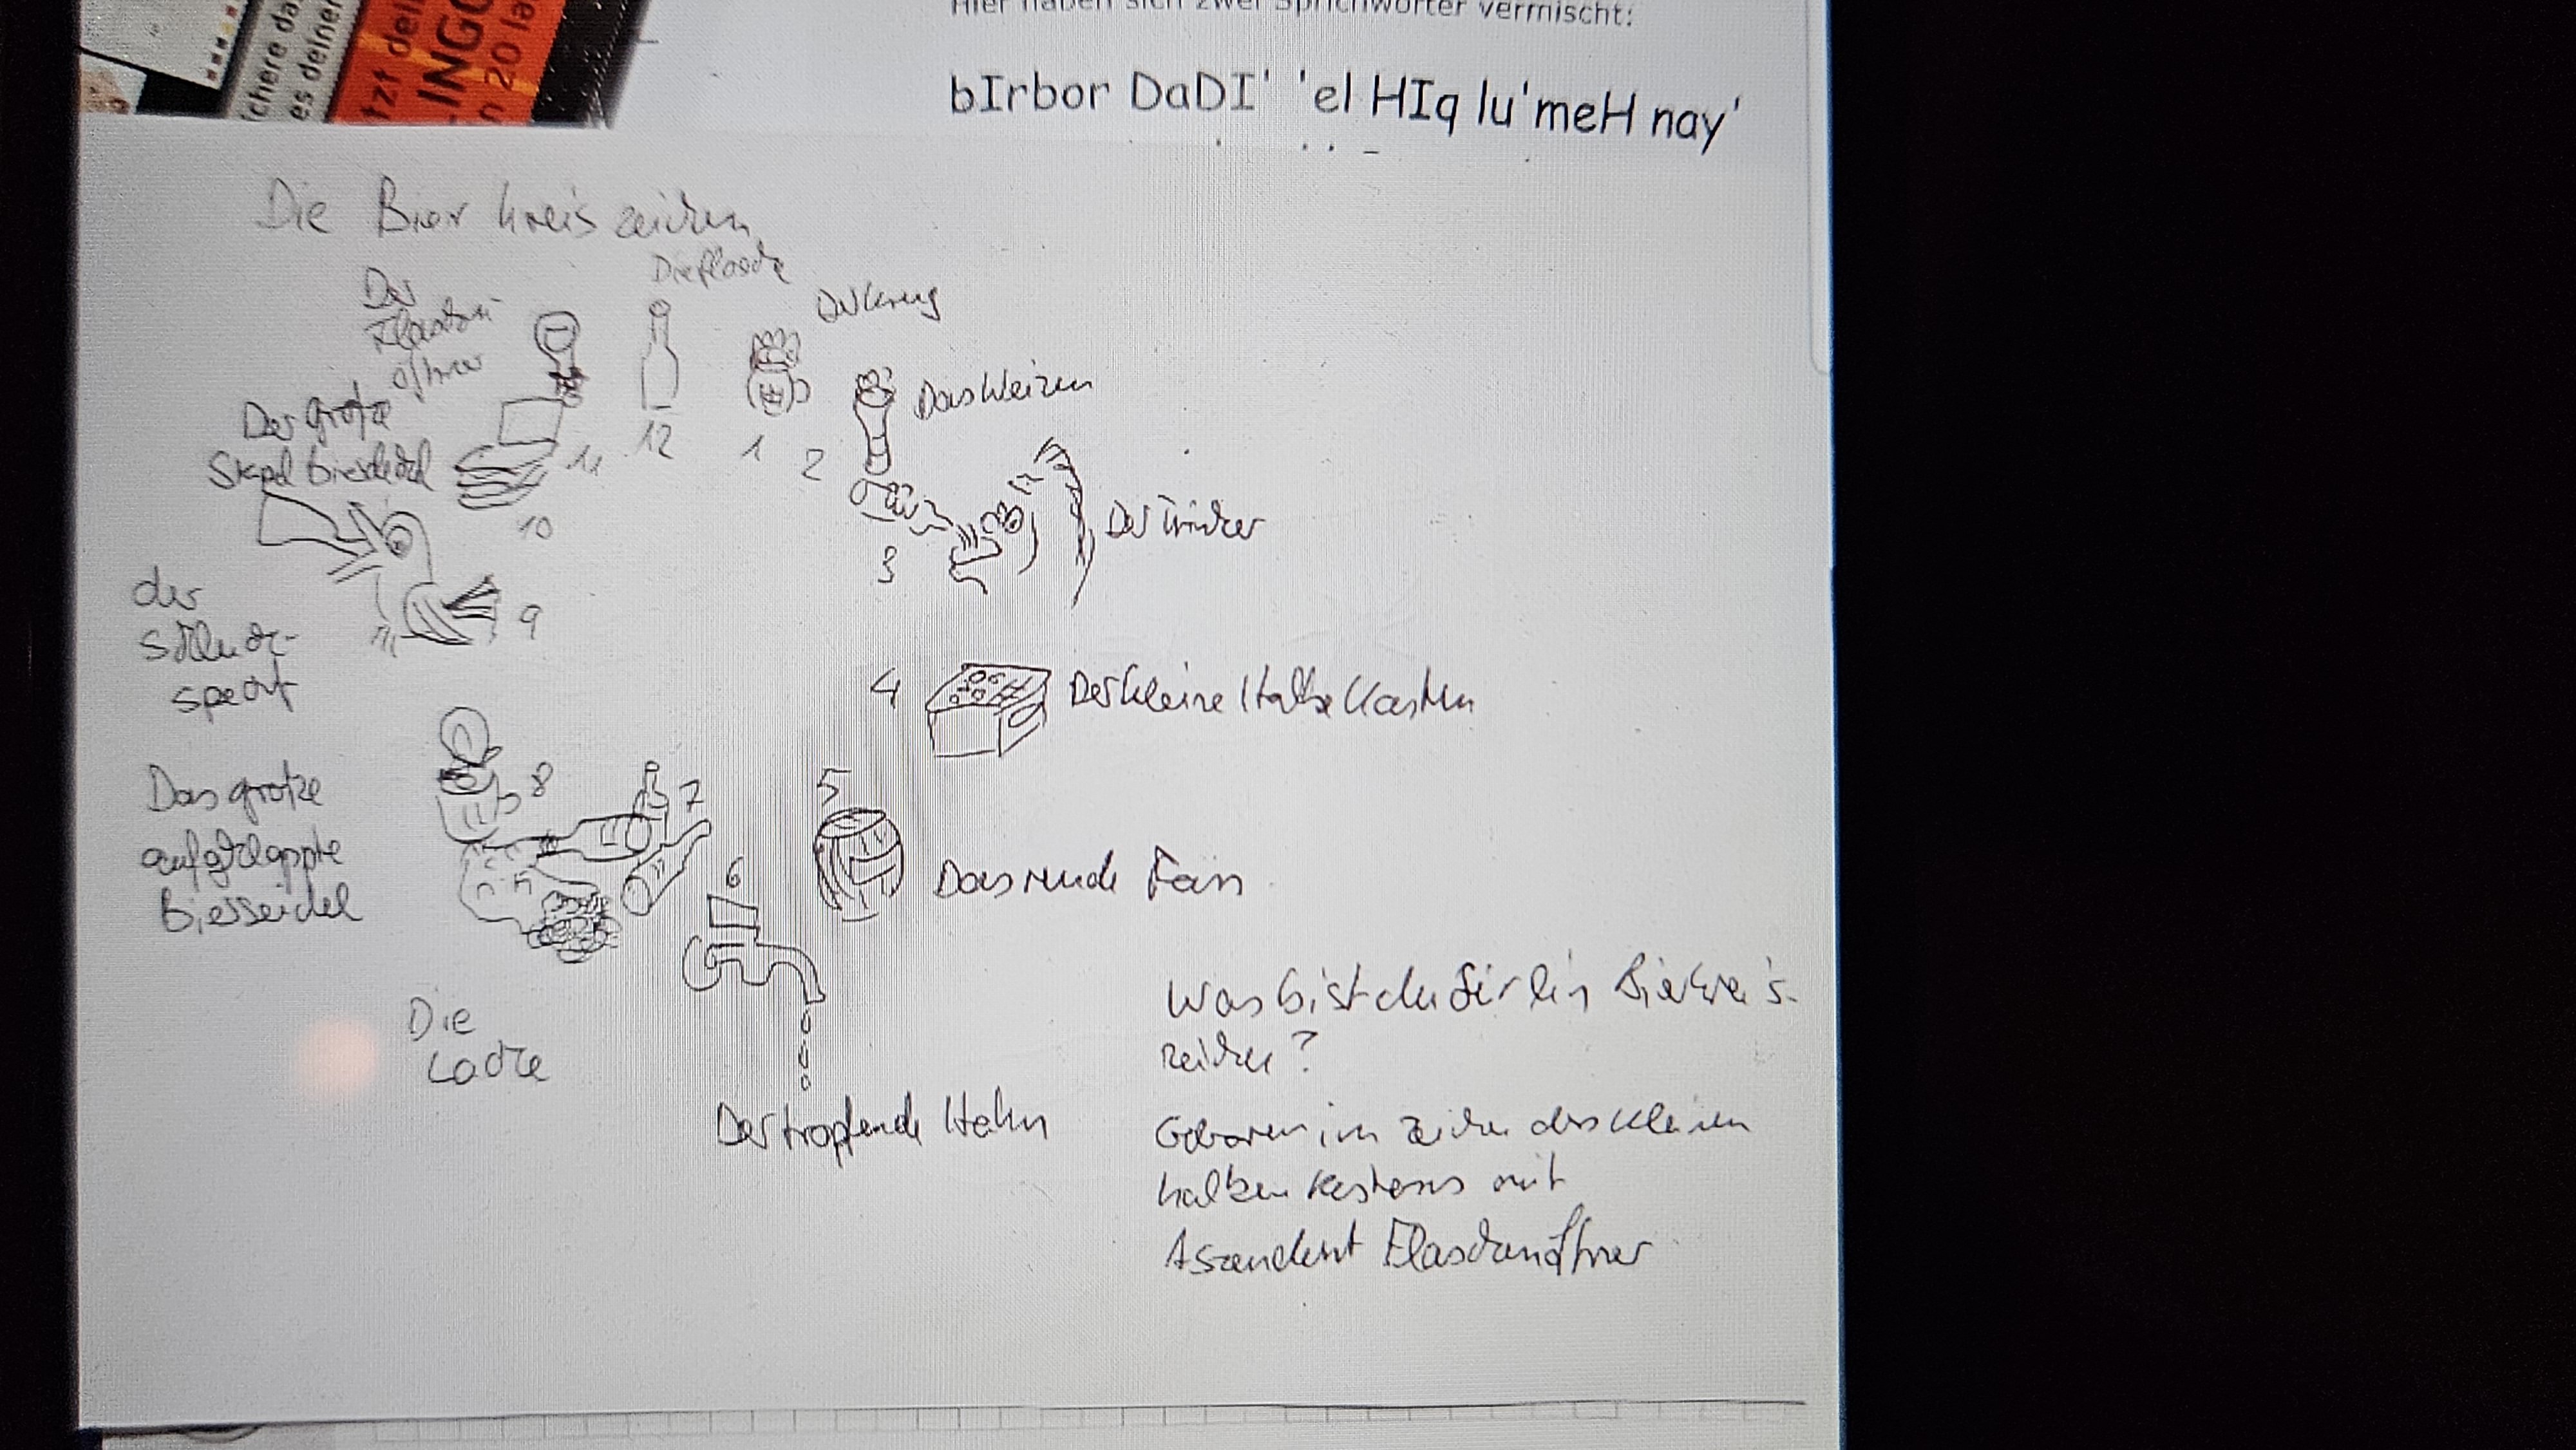 chere da
es deiner
tzt dei
INGO
n 20 la
Hier haben sich zwei Sprichwörter vermischt:
bIrbor DaDI' 'el HIq lu'meH nay'
Die Bierkreiszeichen
Die Flasche
Der
Flaschen
öffner
Der Krug
Das Weizen
Der große
Stapel Bierdeckel
11
12
1
2
10
3
Der Trinker
der
Schluck-
specht
9
4
Der kleine Halbe Kasten
Das große
aufgeklappte
Bierseidel
8
7
5
6
Das runde Fass
Die
Lache
Der tropfende Hahn
Was bist du für ein Bierkreis-
zeichen?
Geboren im Zeichen des kleinen
halben Kastens mit
Aszendent Flaschenöffner